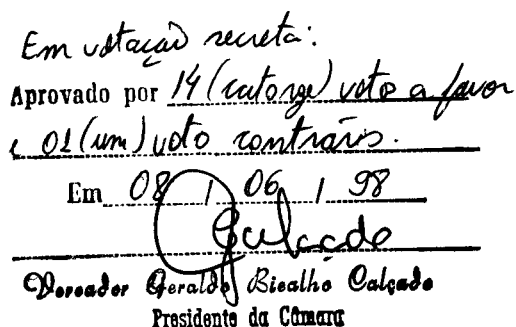 Em votação secreta:
Aprovado por 14 (catorze) votos a favor
e 01 (um) voto contrário.
Em 08 / 06 / 98
Calçado
Vereador Geraldo Bicalho Calçado
Presidente da Câmara